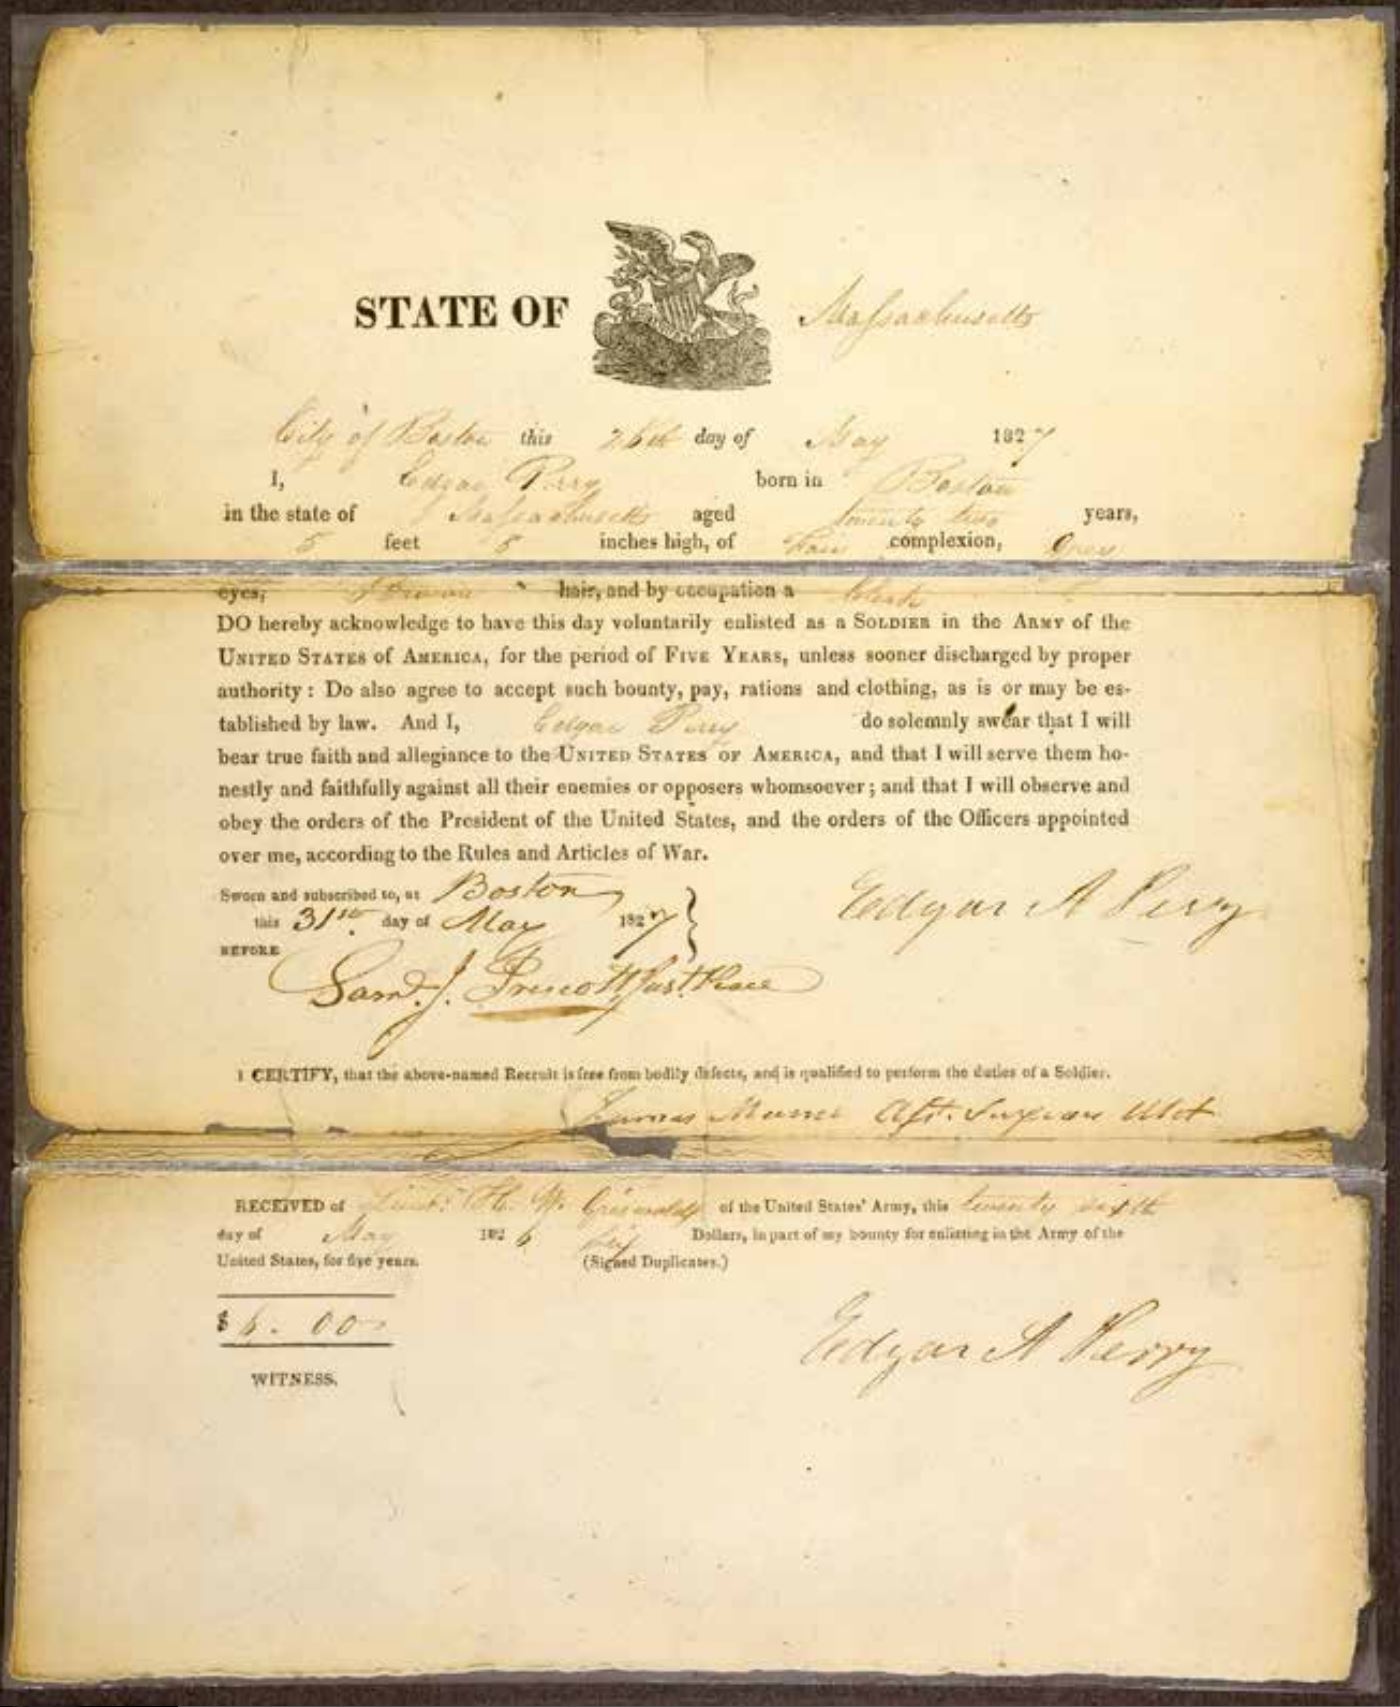 STATE OF Massachusetts
City of Boston this 26th day of May 1827
I, Edgar Perry born in Boston
in the state of Massachusetts aged twenty two years,
5 feet 8 inches high, of fair complexion, Grey
eyes, Brown hair, and by occupation a Clerk
DO hereby acknowledge to have this day voluntarily enlisted as a SOLDIER in the ARMY of the
UNITED STATES of AMERICA, for the period of FIVE YEARS, unless sooner discharged by proper
authority: Do also agree to accept such bounty, pay, rations and clothing, as is or may be es-
tablished by law. And I, Edgar Perry do solemnly swear that I will
bear true faith and allegiance to the UNITED STATES OF AMERICA, and that I will serve them ho-
nestly and faithfully against all their enemies or opposers whomsoever; and that I will observe and
obey the orders of the President of the United States, and the orders of the Officers appointed
over me, according to the Rules and Articles of War.
Sworn and subscribed to, at Boston
this 31st day of May 1827
Edgar A Perry
BEFORE
Saml. J. Prescott Just. Peace
I CERTIFY, that the above-named Recruit is free from bodily defects, and is qualified to perform the duties of a Soldier.
James Mann
RECEIVED of Lieut. H. W. Griswold of the United States' Army, this twenty sixth
day of May 1826 six Dollars, in part of my bounty for enlisting in the Army of the
United States, for five years. (Signed Duplicates.)
$6.00
Edgar A Perry
WITNESS.